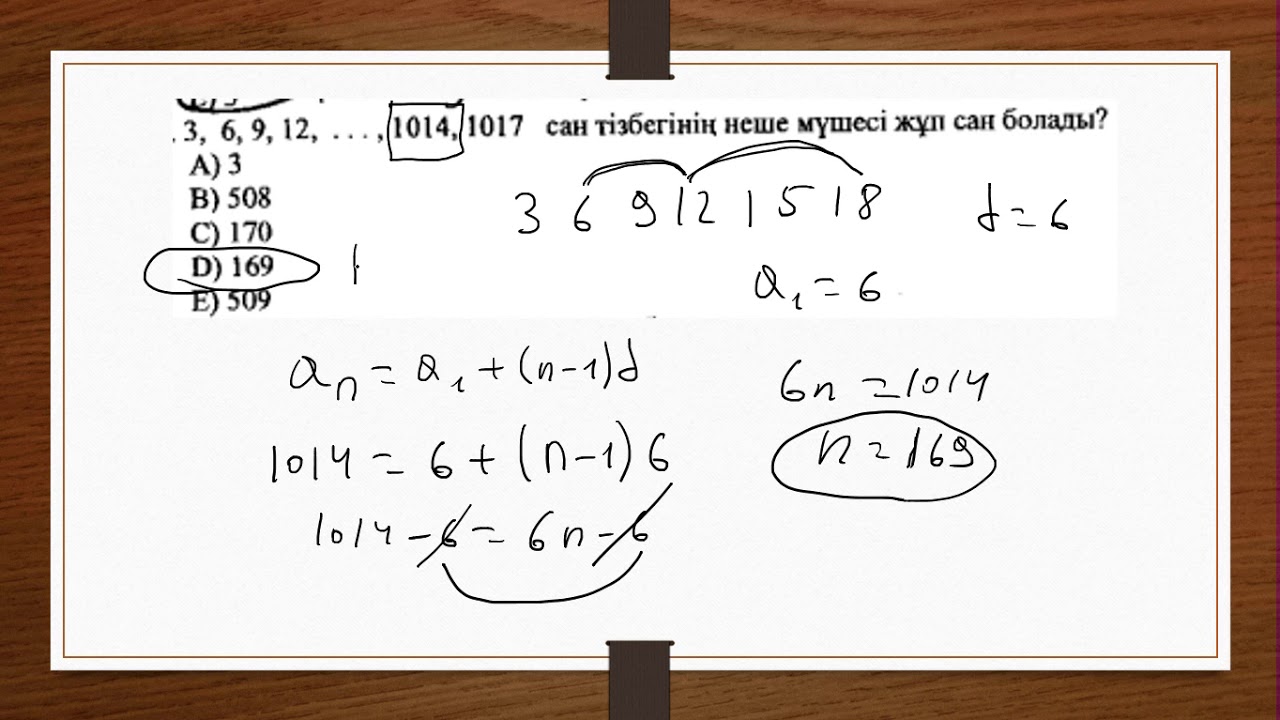 . 3, 6, 9, 12, . . . , 1014, 1017 сан тізбегінің неше мүшесі жұп сан болады?
A) 3
B) 508
C) 170
D) 169
E) 509
3 6 9 12 15 18
d = 6
a₁ = 6
aₙ = a₁ + (n-1)d
1014 = 6 + (n-1) 6
1014 - 6 = 6n - 6
6n = 1014
n = 169